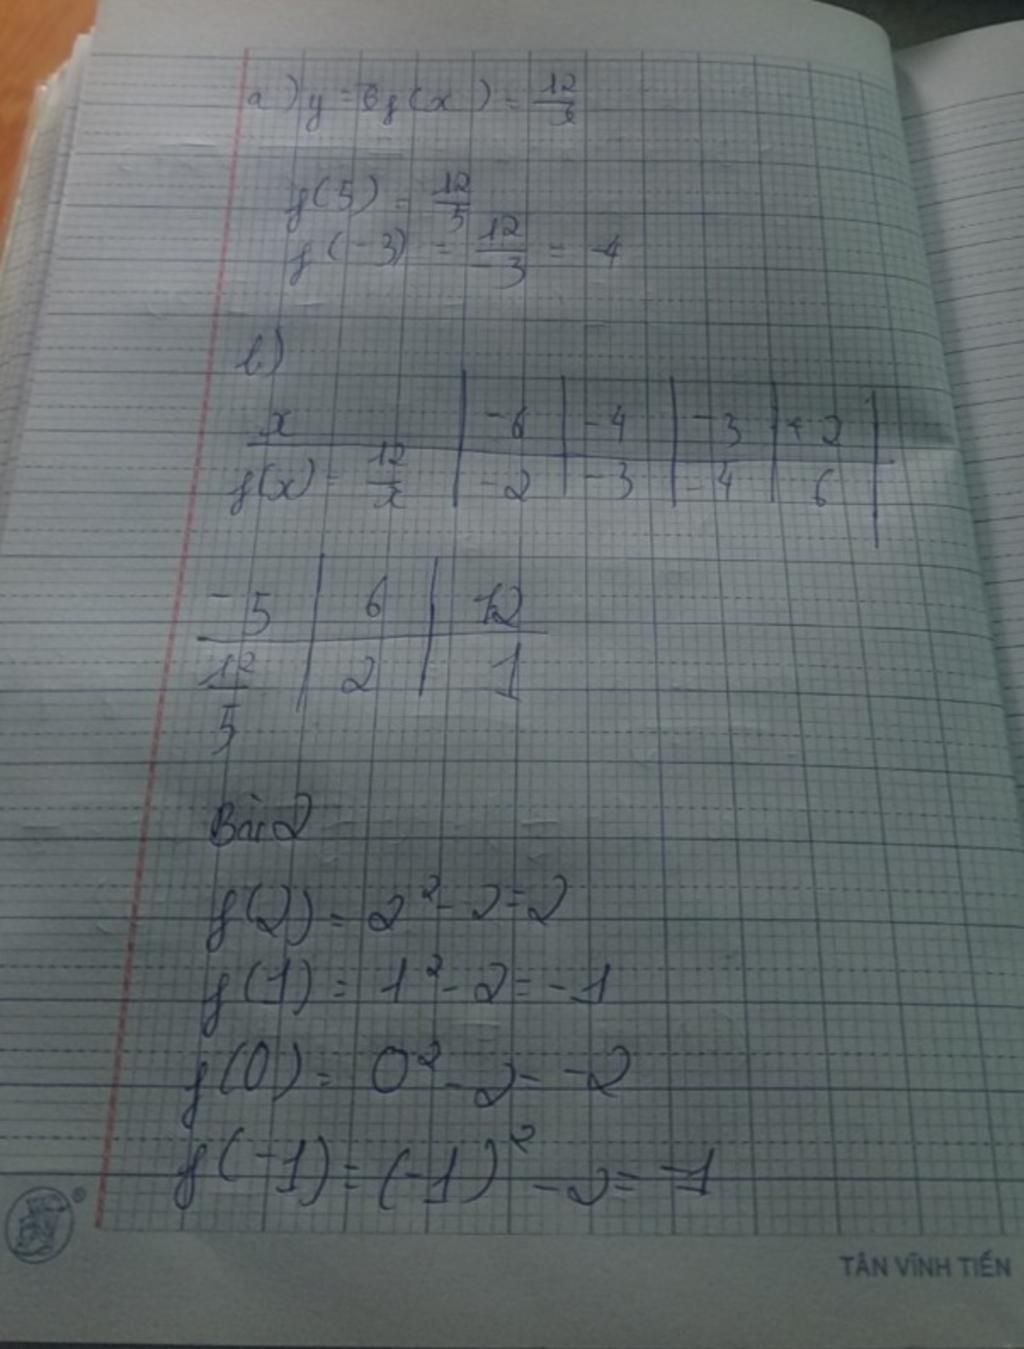 a) y = f(x) = 12/x
f(5) = 12/5
f(-3) = 12/-3 = -4
b)
x | -6 | -4 | -3 | + 2 |
f(x) = 12/x | -2 | -3 | -4 | 6 |
- 5 | 6 | 12
12/5 | 2 | 1
Bài 2
f(2) = 2² - 2 = 2
f(1) = 1² - 2 = -1
f(0) = 0² - 2 = -2
f(-1) = (-1)² - 2 = -1
TÂN VĨNH TIẾN